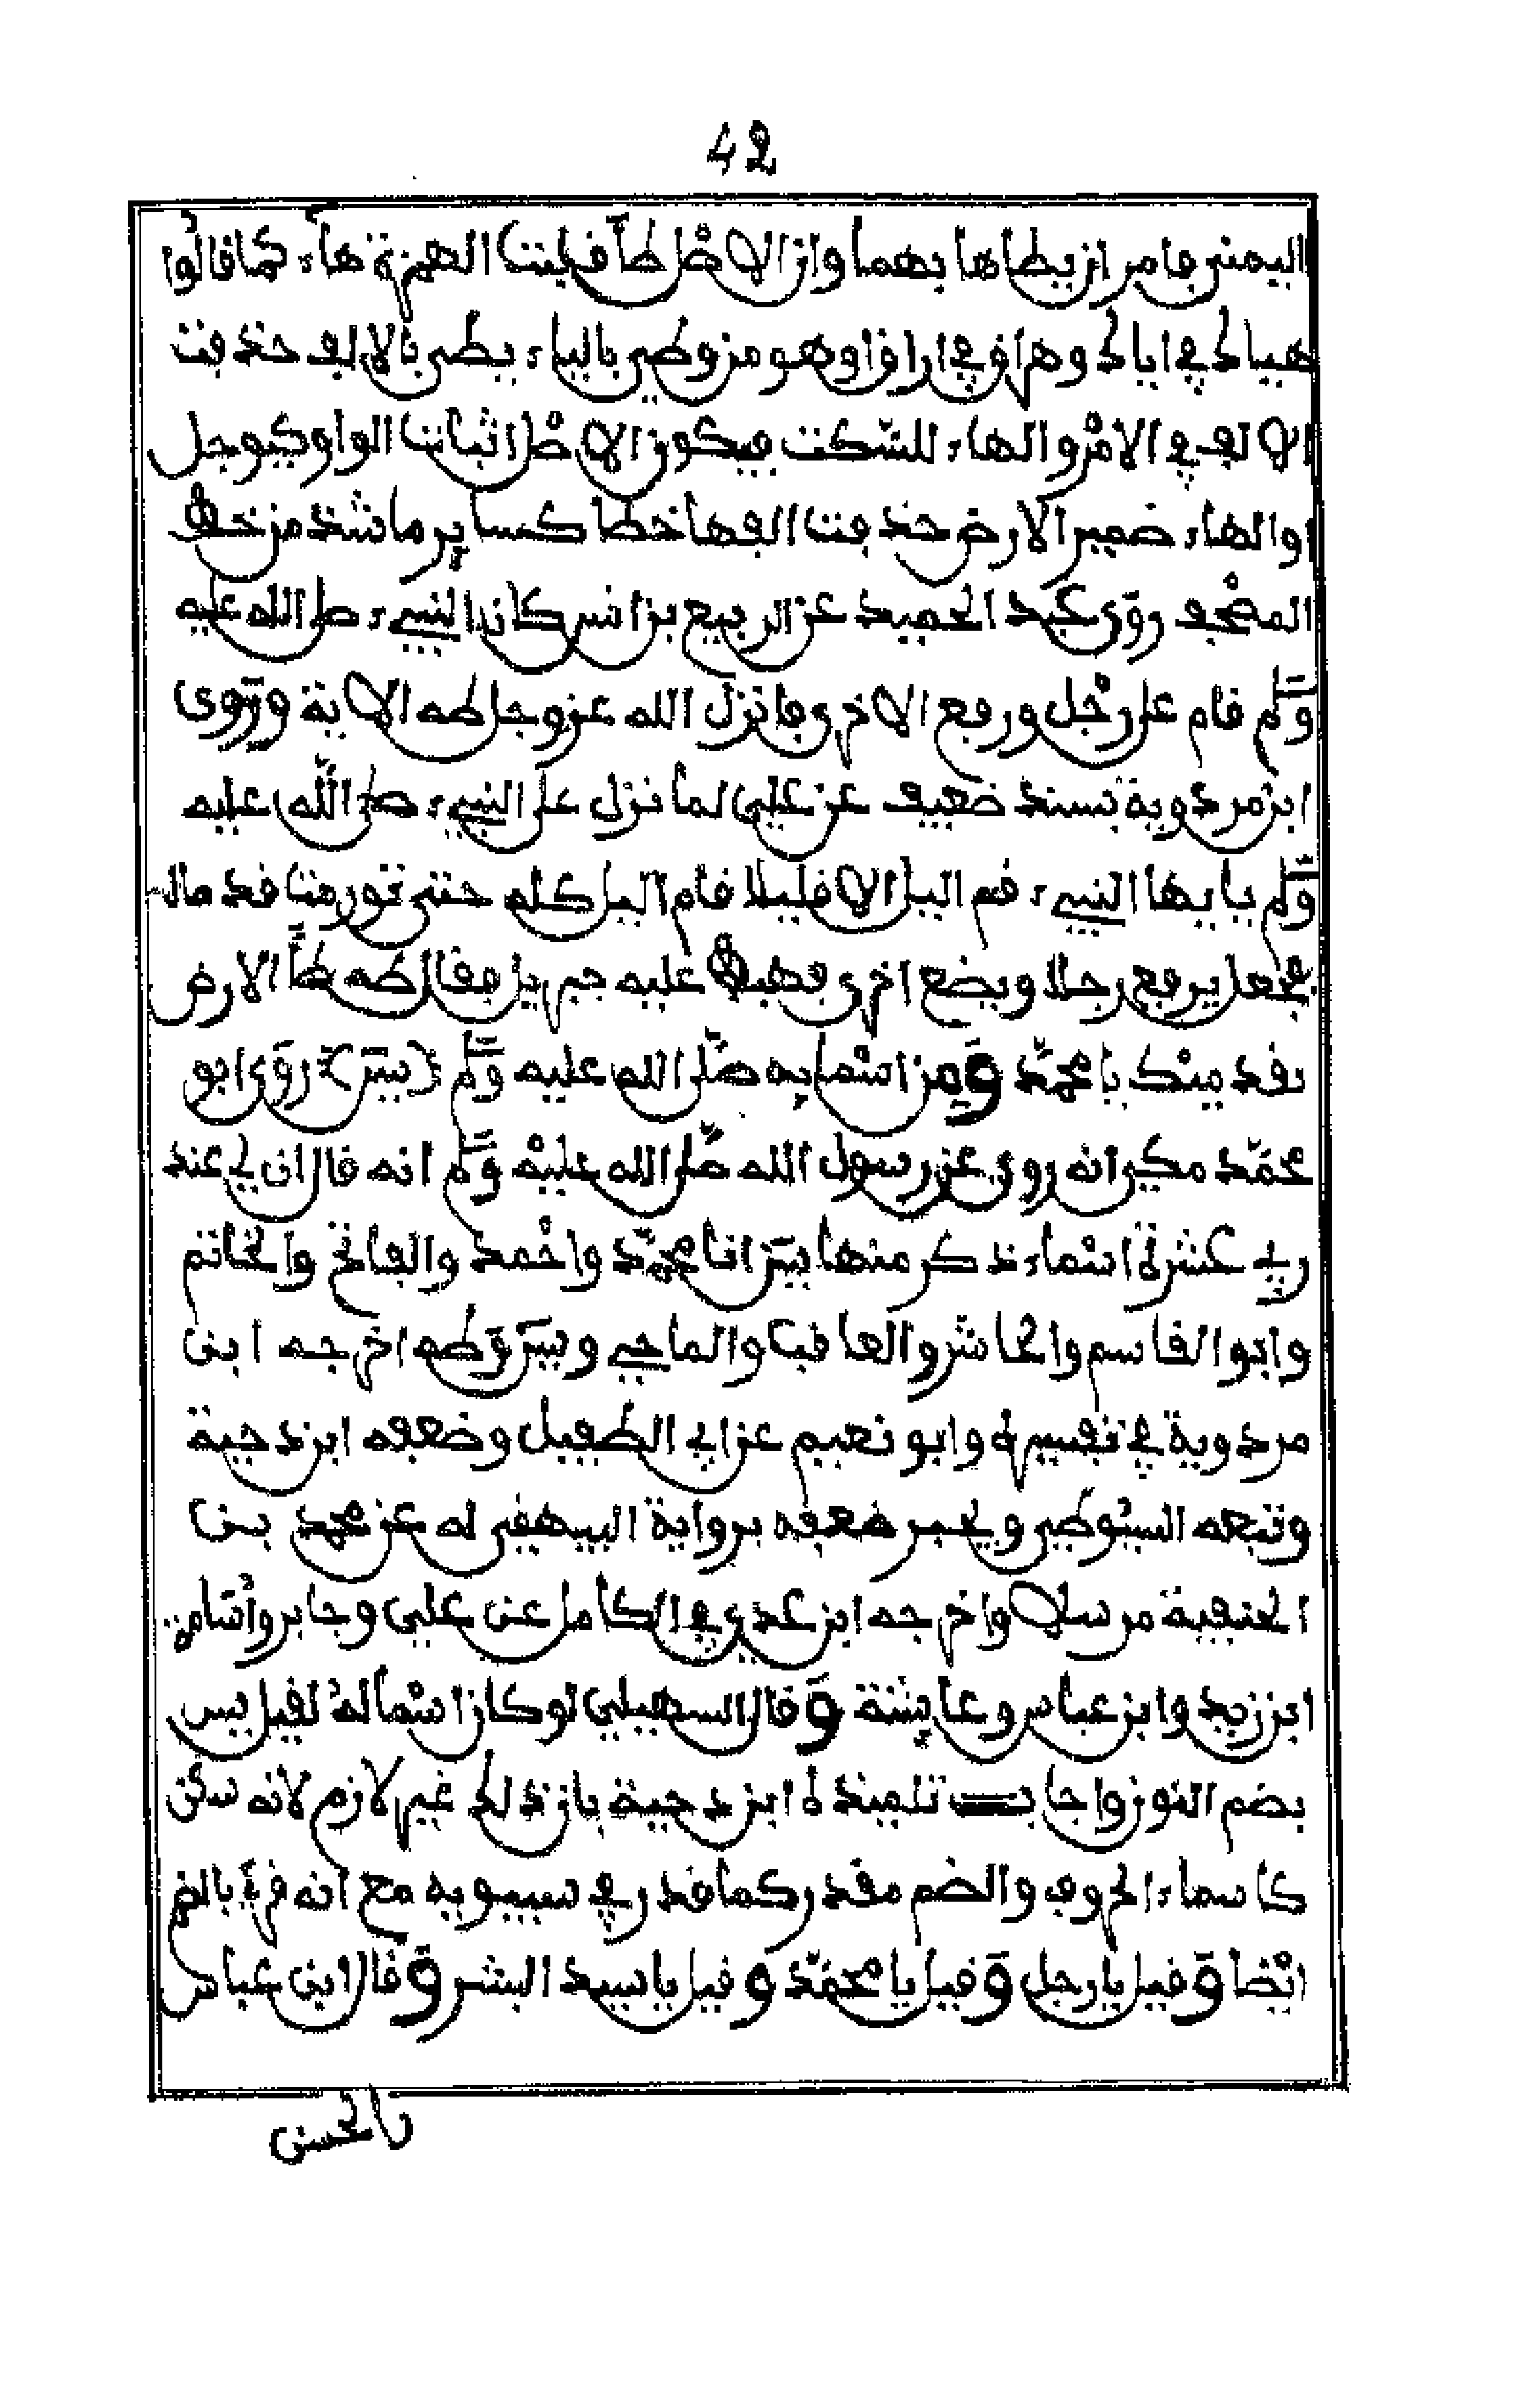 42
اليمنى فامر ان يطاها بهما وان الاصل طأ فقلبت الهمزة هاء كما قالوا
هياك في اياك وهراق في اراق او هو من وطي بالياء يطى بالالف حذفت
الالف في الامر والهاء للسكت فيكون الاصل اثبات الواو كيوجل
او الهاء ضمير الارض حذفت الفها خطا كسائر ما شذ من خط
المصحف روى عبد الحميد عن الربيع بن انس كان النبيء صلى الله عليه
وسلم قام على رجل ورفع الاخرى فانزل الله عز وجل طه الاية وروى
ابن مردوية بسند ضعيف عن علي لما نزل على النبيء صلى الله عليه
وسلم يا ايها النبيء قم اليل الا قليلا قام اليل كله حتى تورمت قدماه
فجعل يرفع رجلا ويضع اخرى فهبط عليه جبريل فقال طه طأ الارض
بقدميك يا محمّد ومن اسمائه صلّى الله عليه وسلم (يسن) روى ابو
محمّد مكي انه روي عن رسول الله صلّى الله عليه وسلم انه قال ان لي عند
ربي عشرة اسماء ذكر منها يسن انا محمّد واحمد والفاتح والخاتم
وابو القاسم والحاشر والعاقب والماحي ويسن وطه اخرجه ابن
مردوية في تفسيره وابو نعيم عن ابي الطفيل وضعفه ابن دحية
وتبعه السيوطي ويجبر ضعفه برواية البيهقي له عن محمد بن
الحنفية مرسلا واخرجه ابن عدي في الكامل عن علي وجابر واسامة
ابن زيد وابن عباس وعايشة وقال السهيلي لو كان اسما له لقيل يس
بضم النون واجاب تلميذه ابن دحية بان ذلك غير لازم لانه سكن
كاسماء الحروف والضم مقدر كما قدره سيبويه مع انه قرئ بالضم
ايضا وقيل يا رجل وقيل يا محمّد وقيل يا سيد البشر وقال ابن عباس
والحسن